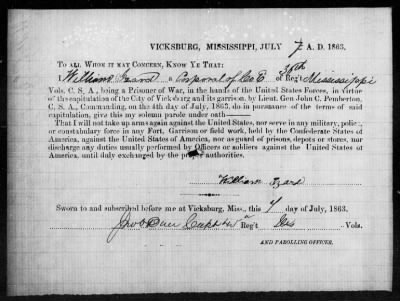 VICKSBURG, MISSISSIPPI, JULY 7 A. D. 1863.
TO ALL WHOM IT MAY CONCERN, KNOW YE THAT:
I William Izard a Corporal of Co E of Reg't Mississippi
Vols. C. S. A., being a Prisoner of War, in the hands of the United States Forces, in virtue
of the capitulation of the City of Vicksburg and its garrison, by Lieut. Gen John C. Pemberton,
C. S. A., Commanding, on the 4th day of July, 1863, do in pursuance of the terms of said
capitulation, give this my solemn parole under oath—
That I will not take up arms again against the United States, nor serve in any military, police,
or constabulary force in any Fort, Garrison or field work, held by the Confederate States of
America, against the United States of America, nor as guard of prisons, depots or stores, nor
discharge any duties usually performed by Officers or soldiers against the United States of
America, until duly exchanged by the proper authorities.
William Izard
Sworn to and subscribed before me at Vicksburg, Miss., this 7 day of July, 1863.
Reg't Vols.
AND PAROLLING OFFICER.